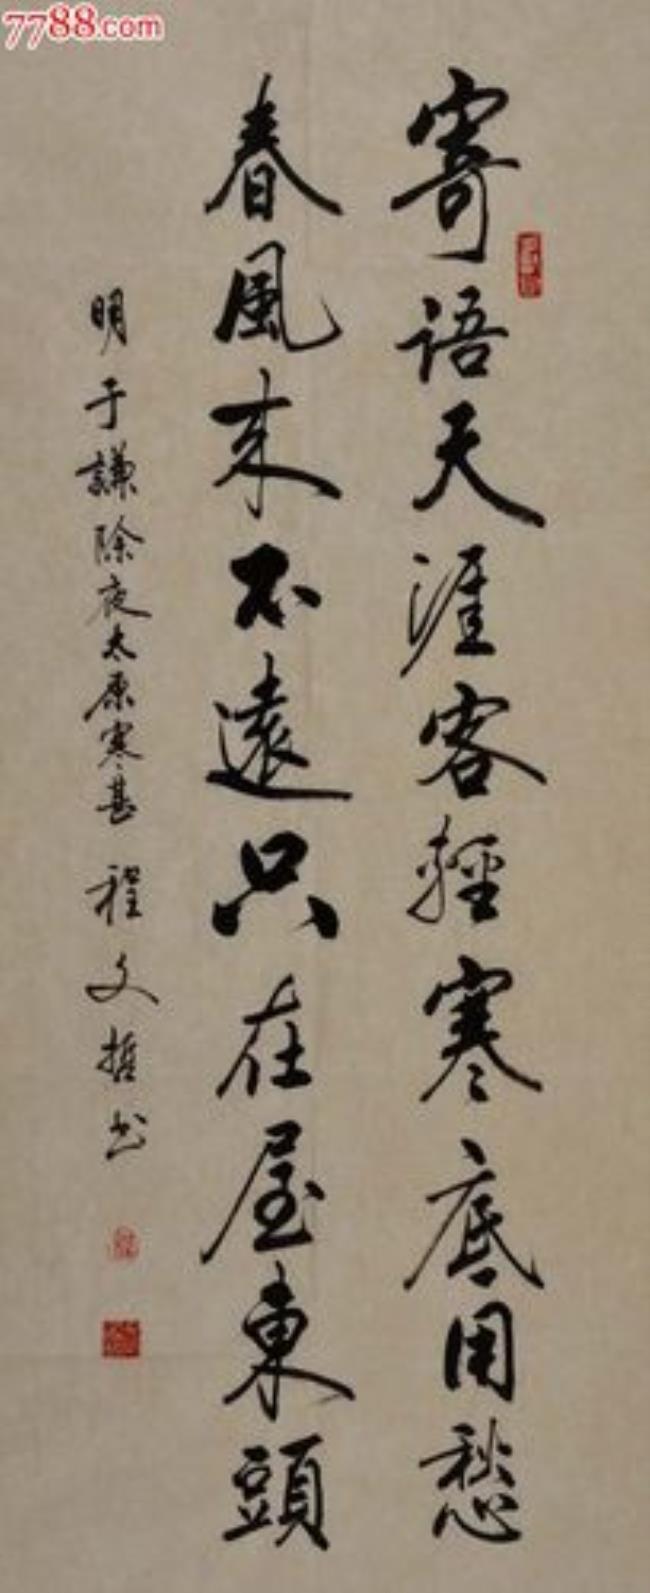 7788.com
寄語天涯客輕寒底用愁
春風來不遠只在屋東頭
明于謙除夜太原寒甚 程文哲书